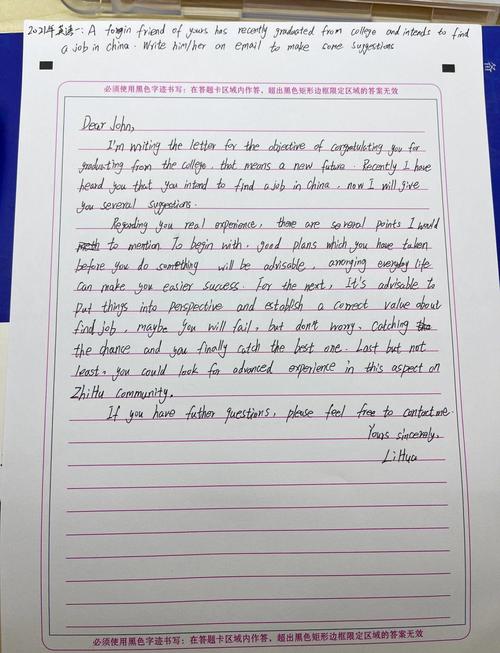 2021年英语一: A forgin friend of yours has recently graduated from college and intends to find
a job in China. Write him/her an email to make some suggestions
必须使用黑色字迹书写: 在答题卡区域内作答, 超出黑色矩形边框限定区域的答案无效
Dear John,
I'm writing the letter for the objective of congratulating you for
graduating from the college, that means a new future. Recently I have
heard you that you intend to find a job in China, now I will give
you several suggestions.
Regarding you real experience, there are several points I would
to mention. To begin with, good plans which you have taken
before you do something will be advisable, arranging everyday life
can make you easier success. For the next, It's advisable to
put things into perspective and establish a correct value about
find job, maybe you will fail, but don't worry, catching
the chance and you finally catch the best one. Last but not
least, you could look for advanced experience in this aspect on
ZhiHu community.
If you have futher questions, please feel free to contact me.
Yours sincerely,
Li Hua
必须使用黑色字迹书写: 在答题卡区域内作答, 超出黑色矩形边框限定区域的答案无效